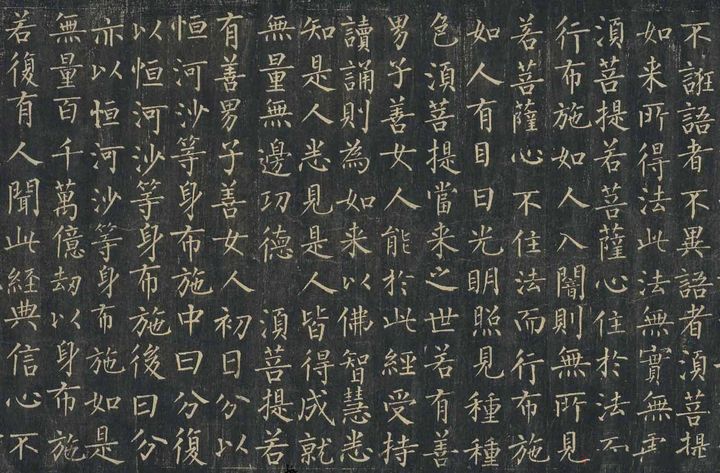 不誑語者不異語者湏菩提
如来所得法此法無實無虛
湏菩提若菩薩心住於法而
行布施如人入闇則無所見
若菩薩心不住法而行布施
如人有目日光明照見種種
色湏菩提當来之世若有善
男子善女人能於此經受持
讀誦則為如来以佛智慧悉
知是人悉見是人皆得成就
無量無邊功德 湏菩提若
有善男子善女人初日分以
恒河沙等身布施中日分復
以恒河沙等身布施後日分
亦以恒河沙等身布施如是
無量百千萬億劫以身布施
若復有人聞此經典信心不